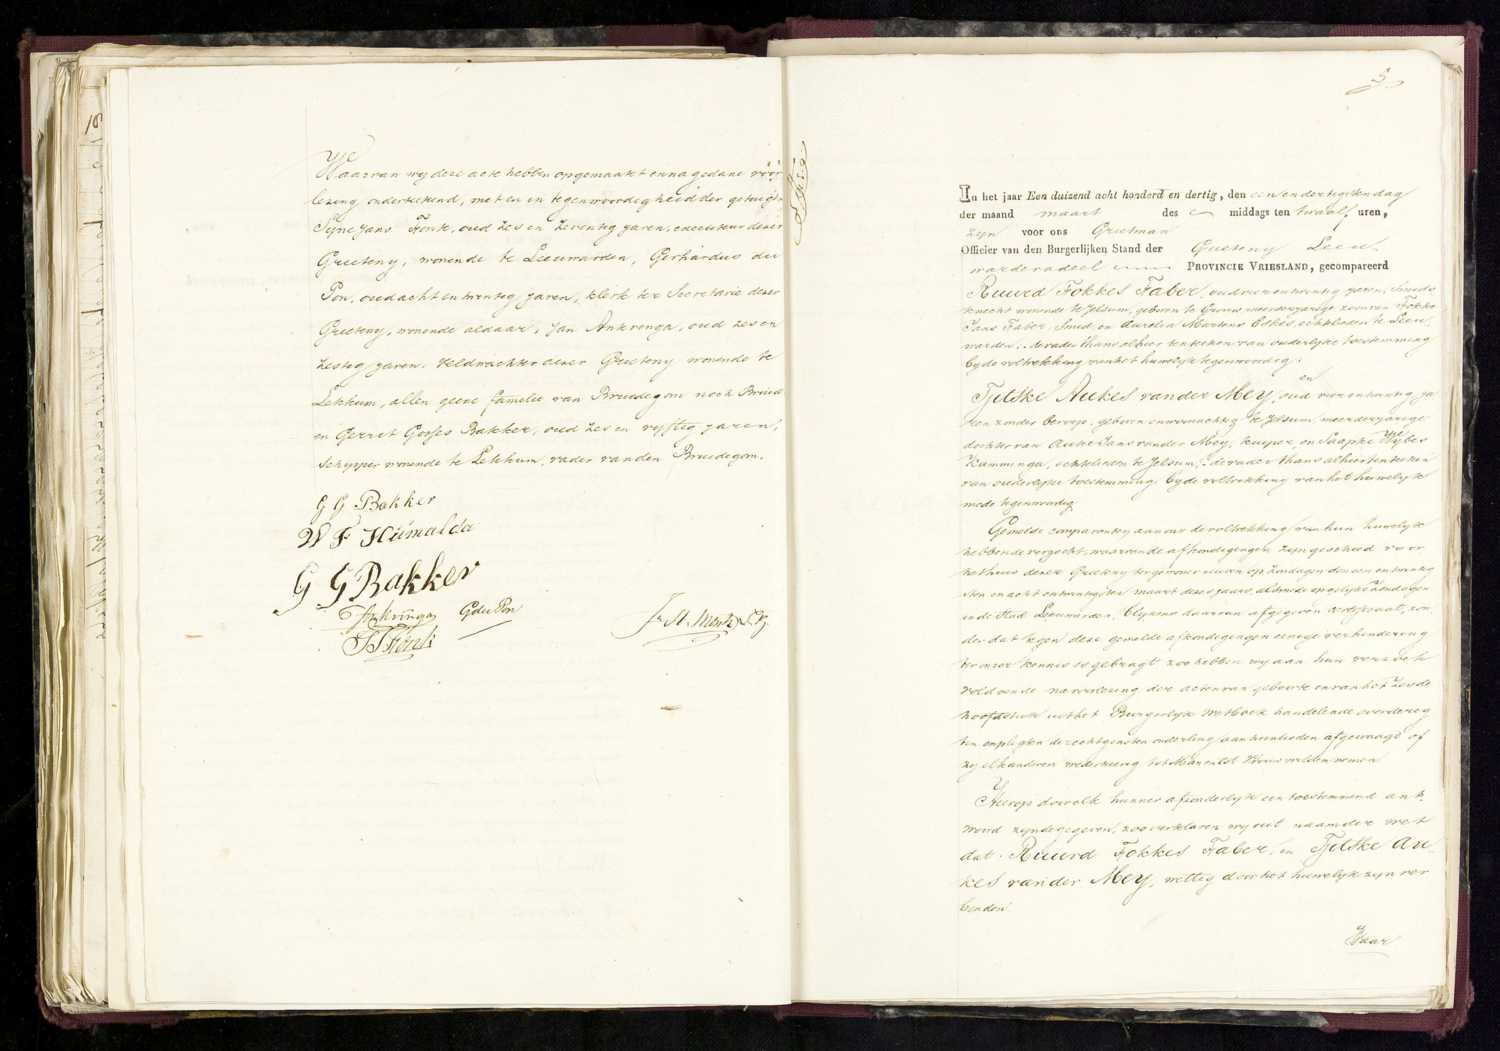 Waarvan wy deze acte hebben opgemaakt en na gedane voor
lezing, onderteekend, met en in tegenwoordigheid der getuigen
Sijne Jans Fonk, oud zes en zeventig jaren, executeur dezer
Grieteny, wonende te Leeuwarden, Gerhardus du
Pon, oud acht en twintig jaren, klerk ter Secretarie dezer
Grieteny, wonende aldaar, Jan Ankringa, oud zes en
zestig jaren, veldwachter dezer Grieteny wonende te
Lekkum, allen geene familie van Bruidegom noch Bruid
en Gerrit Gosses Bakker, oud zes en vyftig jaren,
schipper wonende te Lekkum, vader van den Bruidegom.
G G Bakker
W F Humalda
G G Bakker
Ankringa G du Pon
S J Fonk
5
In het jaar Een duizend acht honderd en dertig, den een en dertigsten dag
der maand maart des middags ten twaalf uren,
zijn voor ons Grietman
Officier van den Burgerlijken Stand der Grieteny Leeu-
warderadeel PROVINCIE VRIESLAND, gecompareerd
Ruurd Fokkes Faber, oud vier en twintig jaren, Smeds
knecht wonende te Jelsum, geboren te Grouw meerderjarige zoon van Fokke
Jans Faber, Smid, en Aurelia Martens Eskes, echtelieden te Leeu-
warden; de vader thans alhier ten teeken van ouderlyke toestemming
by de voltrekking van het huwelyk tegenwoordig;
en
Tjitske Aukes van der Mey, oud vier en twintig ja
ren zonder beroep, geboren en woonachtig te Jelsum, meerderjarige
dochter van Auke Jans van der Mey, kuiper en Saapke Wybes
Kamminga, echtelieden te Jelsum; de vader thans alhier ten teeken
van ouderlyke toestemming by de voltrekking van het huwelyk
mede tegenwoordig
Gemelde comparanten aan ons de voltrekking van hun huwelyk
hebbende verzocht, waarvan de afkondigingen zyn geschied voor
het huis dezer Grieteny ter gewone uuren op Zondagen den een en twintig
sten en acht en twintigsten maart dezes jaars, alsmede op gelyke Zondagen
in de Stad Leeuwarden, blykens daarvan afgegeven certificaat, zon-
der dat tegen deze gemelde afkondigingen eenige verhindering
ter onzer kennis is gebragt zoo hebben wy aan hun verzoek
voldoende na voorlezing der acten van geboorte en van het zesde
hoofdstuk uit het Burgerlyk Wetboek handelende over de reg
ten en pligten der echtgenoten onderling aan hunlieden afgevraagd of
zy elkanderen wederkeerig tot Man en tot Vrouw wilden nemen
Hierop door elk hunner afzonderlyk een toestemmend ant-
woord zynde gegeven, zoo verklaren wy uit naam der wet
dat Ruurd Fokkes Faber, en Tjitske Au-
kes van der Mey, wettig door het huwelyk zyn ver
bonden
Waar